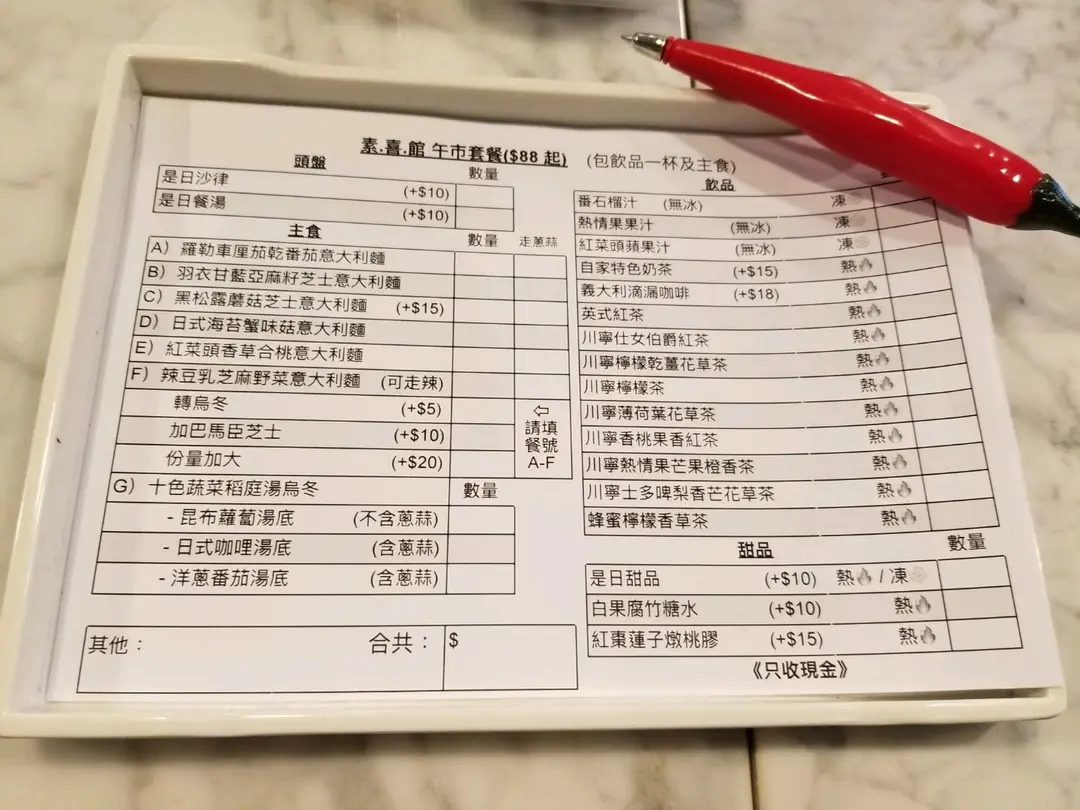 素.喜.館 午市套餐($88 起) (包飲品一杯及主食)
頭盤 數量
是日沙律 (+$10)
是日餐湯 (+$10)
主食 數量 走蔥蒜
A) 羅勒車厘茄乾番茄意大利麵
B) 羽衣甘藍亞麻籽芝士意大利麵
C) 黑松露蘑菇芝士意大利麵 (+$15)
D) 日式海苔蟹味菇意大利麵
E) 紅菜頭香草合桃意大利麵
F) 辣豆乳芝麻野菜意大利麵 (可走辣)
轉烏冬 (+$5)
加巴馬臣芝士 (+$10)
份量加大 (+$20)
⇦
請填
餐號
A-F
G) 十色蔬菜稻庭湯烏冬 數量
- 昆布蘿蔔湯底 (不含蔥蒜)
- 日式咖哩湯底 (含蔥蒜)
- 洋蔥番茄湯底 (含蔥蒜)
其他： 合共： $
飲品
番石榴汁 (無冰) 凍
熱情果果汁 (無冰) 凍
紅菜頭蘋果汁 (無冰) 凍
自家特色奶茶 (+$15) 熱
義大利滴漏咖啡 (+$18) 熱
英式紅茶 熱
川寧仕女伯爵紅茶 熱
川寧檸檬乾薑花草茶 熱
川寧檸檬茶 熱
川寧薄荷葉花草茶 熱
川寧香桃果香紅茶 熱
川寧熱情果芒果橙香茶 熱
川寧士多啤梨香芒花草茶 熱
蜂蜜檸檬香草茶 熱
甜品 數量
是日甜品 (+$10) 熱 / 凍
白果腐竹糖水 (+$10) 熱
紅棗蓮子燉桃膠 (+$15) 熱
《只收現金》